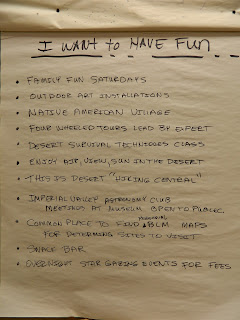 I WANT to HAVE FUN
• FAMILY FUN SATURDAYS
• OUTDOOR ART INSTALLATIONS
• NATIVE AMERICAN VILLAGE
• FOUR WHEELED TOURS LEAD BY EXPERT
• DESERT SURVIVAL TECHNIQUES CLASS
• ENJOY AIR, VIEW, SUN IN THE DESERT
• THIS IS DESERT "HIKING CENTRAL"
• IMPERIAL VALLEY ASTRONOMY CLUB
MEETINGS AT MUSEUM, OPEN TO PUBLIC.
• COMMON PLACE TO FIND BLM MAPS
FOR DETERMING SITES TO VISIT
• SNACK BAR
• OVERNIGHT STAR GAZING EVENTS FOR FEES